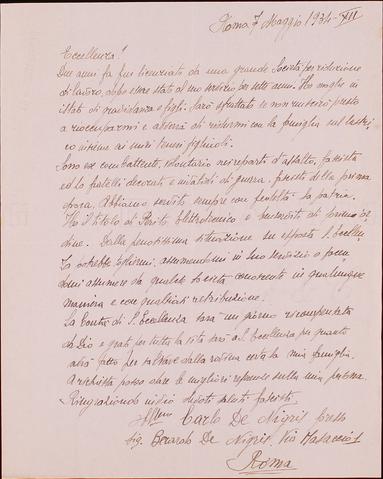 Roma 7 Maggio 1934-XII
Eccellenza!
Due anni fa fui licenziato da una grande Società per riduzione
di lavoro, dopo essere stato al suo servizio per sette anni. Ho moglie in
istato di gravidanza e figli. Sarò sfrattato se non riuscirò presto
a rioccuparmi e dovrò ridurmi con la famiglia sul lastri-
co insieme ai miei teneri figliuoli.
Sono ex combattente, volontario nei reparti d'assalto, fascista
ed ho fratelli decorati e mutilati di guerra, fascisti della prima
ora. Abbiamo servito sempre con fedeltà la patria.
Ho il titolo di Perito Elettrotecnico e di primo or-
dine. Dalla penosissima situazione su esposta l'Eccellen-
za potrebbe togliermi, assumendomi in suo servizio o facen-
domi assumere da qualche Società consorente in qualunque
maniera e con qualsiasi retribuzione.
La bontà di S. Eccellenza sarà un giorno ricompensata
da Dio e grato per tutta la vita sarò all'Eccellenza per quanto
avrà fatto per salvare dalla rovina certa la mia famiglia.
A richiesta posso dare le migliori referenze sulla mia persona.
Ringraziando invio devoti saluti fascisti.
Carlo De Nigris presso
Sig. Gerardo De Nigris Via Masaccio 1
Roma